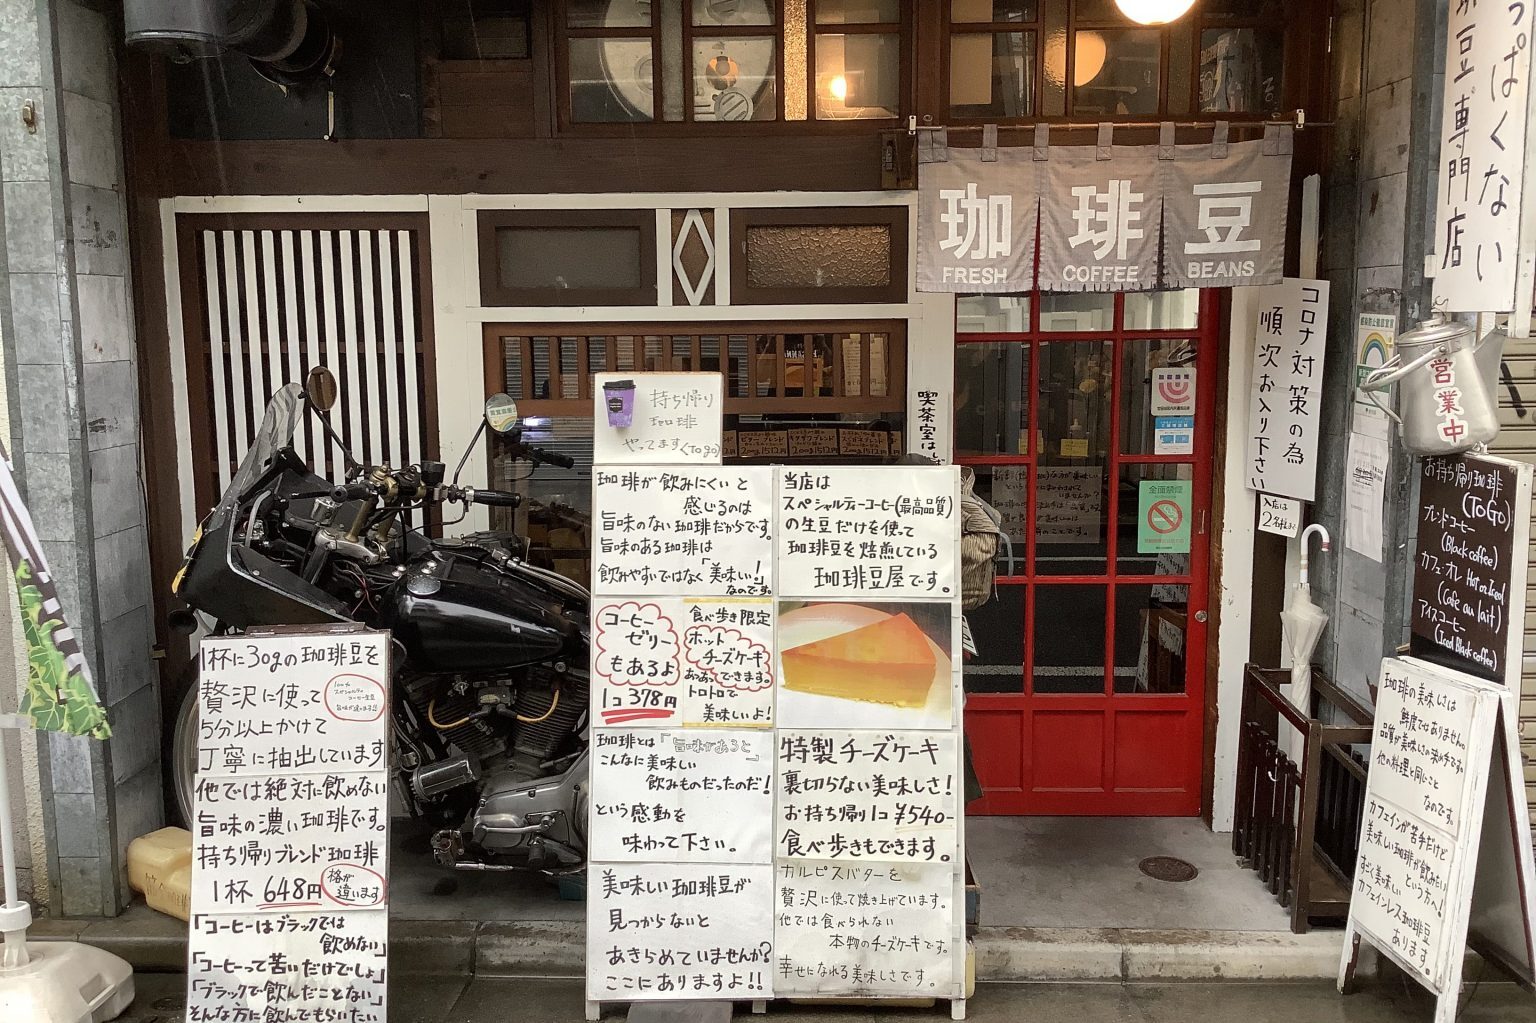 珈琲豆
FRESH COFFEE BEANS
っぱくない
珈琲豆専門店
コロナ対策の為
順次お入り下さい
入店は
2名様まで
営業中
喫茶室は
全面禁煙
持ち帰り
珈琲
やってます(To go)
珈琲が飲みにくいと
感じるのは
旨味のない珈琲だからです。
旨味のある珈琲は
飲みやすいではなく「美味しい!」
なのです。
当店は
スペシャルティーコーヒー(最高品質)
の生豆だけを使って
珈琲豆を焙煎している
珈琲豆屋です。
コーヒー
ゼリー
もあるよ
1コ 378円
食べ歩き限定
ホット
チーズケーキ
できます。
トロトロで
美味しいよ!
珈琲とは「旨味があると
こんなに美味しい
飲みものだったのだ!」
という感動を
味わって下さい。
特製チーズケーキ
裏切らない美味しさ!
お持ち帰り1コ ¥540-
食べ歩きもできます。
美味しい珈琲豆が
見つからないと
あきらめていませんか?
ここにありますよ!!
カルピスバターを
贅沢に使って焼き上げています。
他では食べられない
本物のチーズケーキです。
幸せになれる美味しさです。
1杯に30gの珈琲豆を
贅沢に使って
5分以上かけて
丁寧に抽出しています
他では絶対に飲めない
旨味の濃い珈琲です。
持ち帰りブレンド珈琲
1杯 648円
格が
違います
「コーヒーはブラックでは
飲めない」
「コーヒーって苦いだけでしょ」
「ブラックで飲んだことない」
そんな方に飲んでもらいたい
お持ち帰り珈琲
(To Go)
ブレンドコーヒー
(Black coffee)
カフェ・オレ Hot or Iced
(Cafe au lait)
アイスコーヒー
(Iced Black coffee)
珈琲の美味しさは
鮮度ではありません。
品質が美味しさの決め手です。
他の料理と同じこと
なのです。
カフェインが苦手だけど
美味しい珈琲が飲みたい
という方へ!
すごく美味しい
カフェインレス珈琲豆
あります。